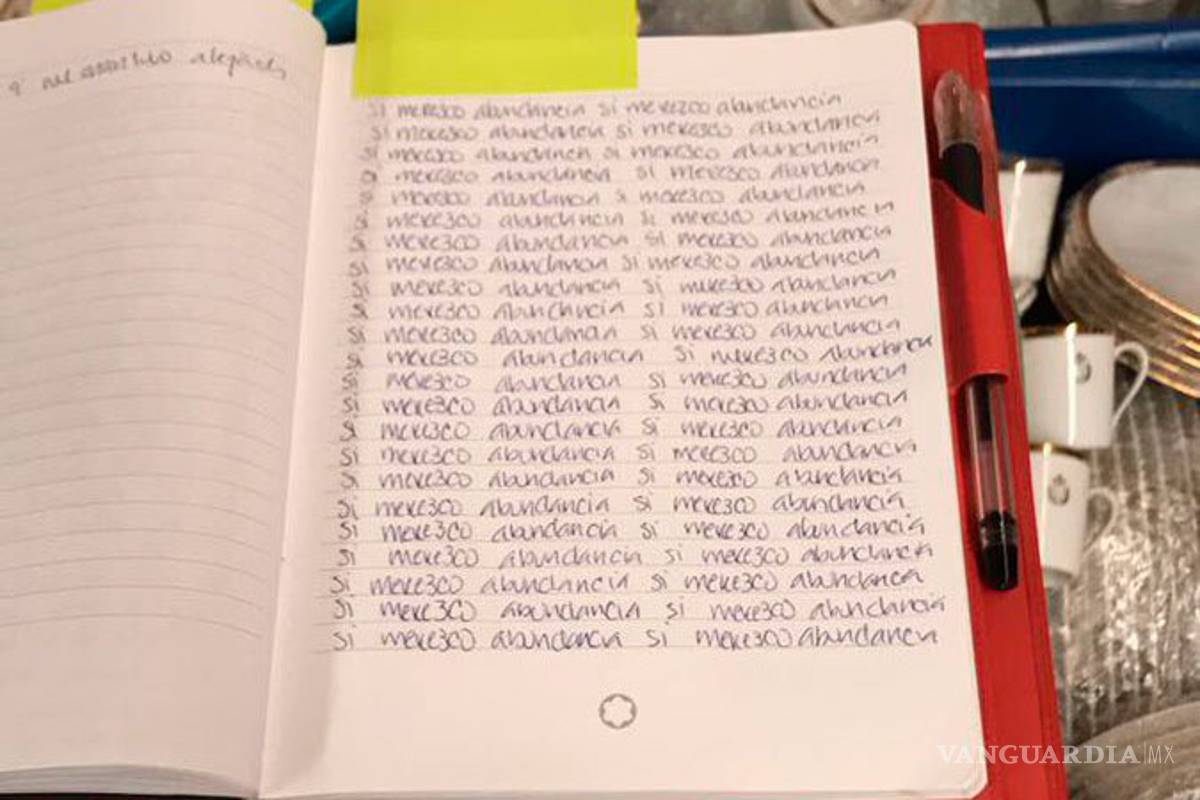 si merezco abundancia si merezco abundancia
si merezco abundancia si merezco abundancia
si merezco abundancia si merezco abundancia
si merezco abundancia si merezco abundancia
si merezco abundancia si merezco abundancia
si merezco abundancia si merezco abundancia
si merezco abundancia si merezco abundancia
si merezco abundancia si merezco abundancia
si merezco abundancia si merezco abundancia
si merezco abundancia si merezco abundancia
si merezco abundancia si merezco abundancia
si merezco abundancia si merezco abundancia
si merezco abundancia si merezco abundancia
si merezco abundancia si merezco abundancia
si merezco abundancia si merezco abundancia
si merezco abundancia si merezco abundancia
si merezco abundancia si merezco abundancia
si merezco abundancia si merezco abundancia
si merezco abundancia si merezco abundancia
si merezco abundancia si merezco abundancia
si merezco abundancia si merezco abundancia
si merezco abundancia si merezco abundancia
si merezco abundancia si merezco abundancia
VANGUARDIA|MX